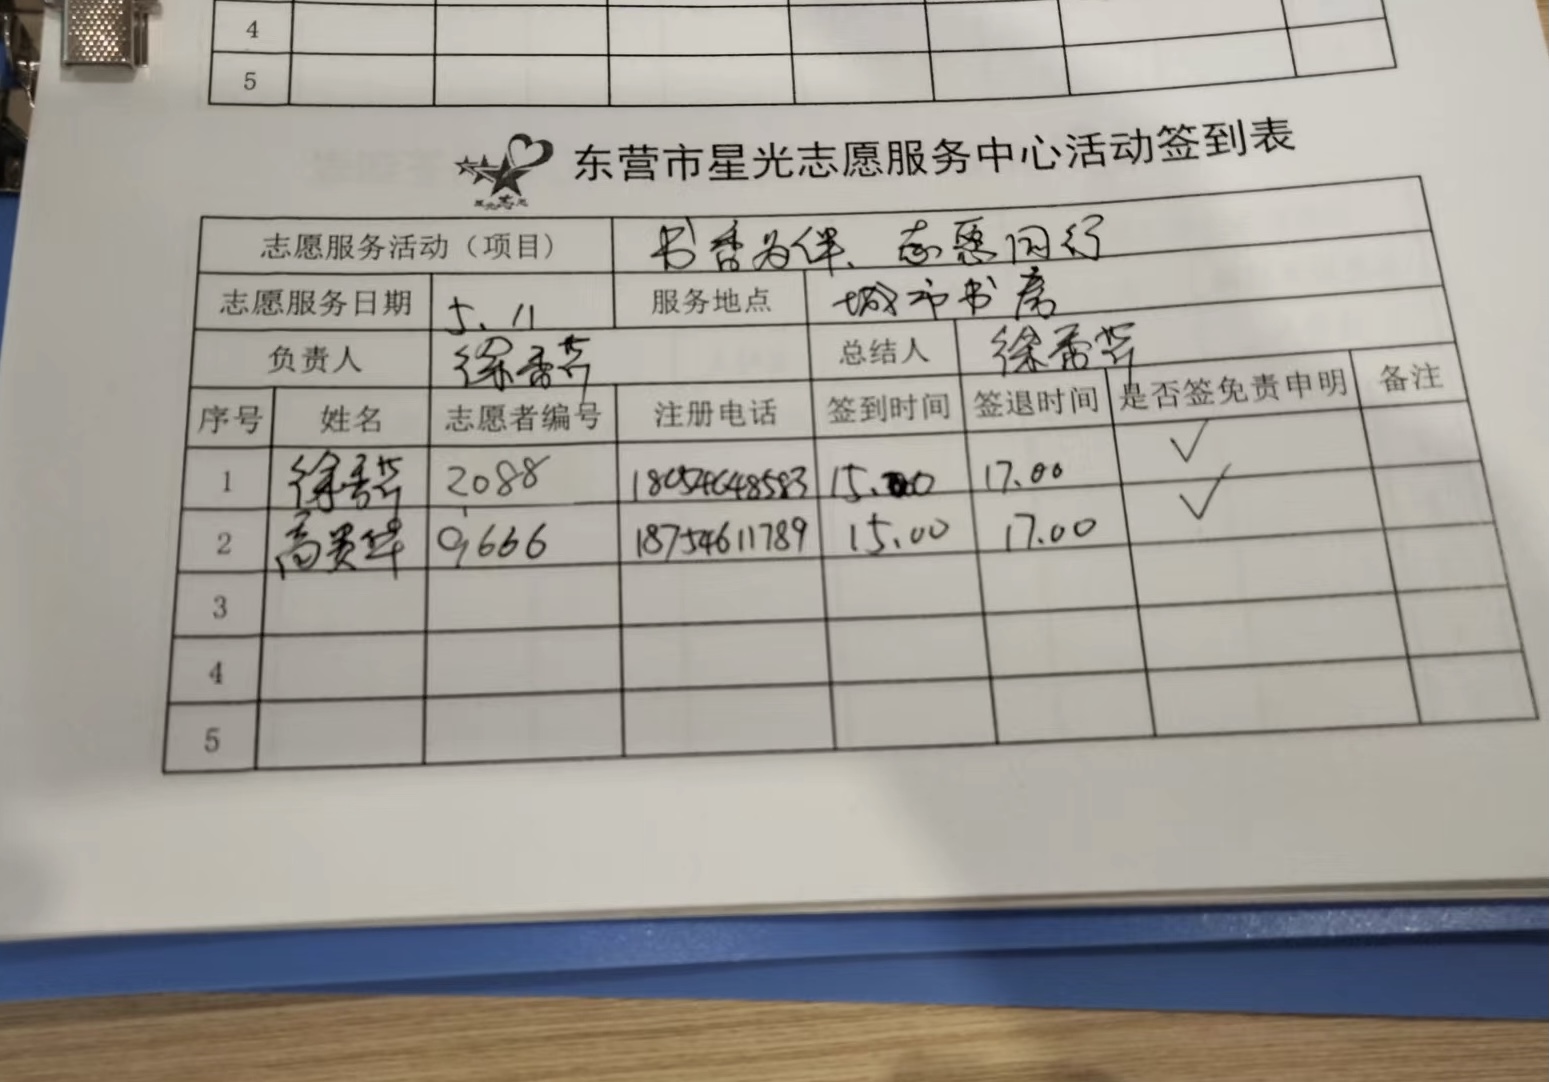 4
5
东营市星光志愿服务中心活动签到表
志愿服务活动（项目） 书香为伴、志愿同行
志愿服务日期 5.11 服务地点 城市书房
负责人 徐香芹 总结人 徐香芹
序号 姓名 志愿者编号 注册电话 签到时间 签退时间 是否签免责申明 备注
1 徐香芹 2088 18054648583 15.00 17.00 ✓
2 高贵华 9666 18754611789 15.00 17.00 ✓
3
4
5